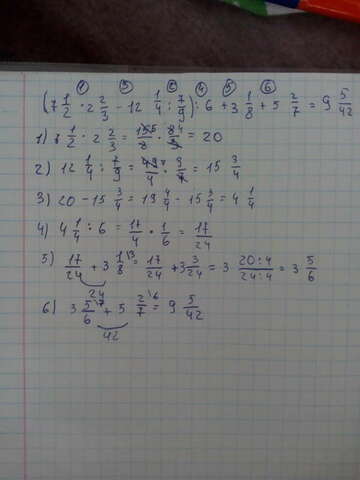 ① ③ ② ④ ⑤ ⑥
(7 1/2 · 2 2/3 - 12 1/4 : 7/9) : 6 + 3 1/8 + 5 2/7 = 9 5/42
1) 7 1/2 · 2 2/3 = 15/2 · 8/3 = 20
2) 12 1/4 : 7/9 = 49/4 · 9/7 = 15 3/4
3) 20 - 15 3/4 = 19 4/4 - 15 3/4 = 4 1/4
4) 4 1/4 : 6 = 17/4 · 1/6 = 17/24
5) 17/24 + 3 1/8 \3 = 17/24 + 3 3/24 = 3 20:4/24:4 = 3 5/6
24
6) 3 5/6 \7 + 5 2/7 \6 = 9 5/42
42